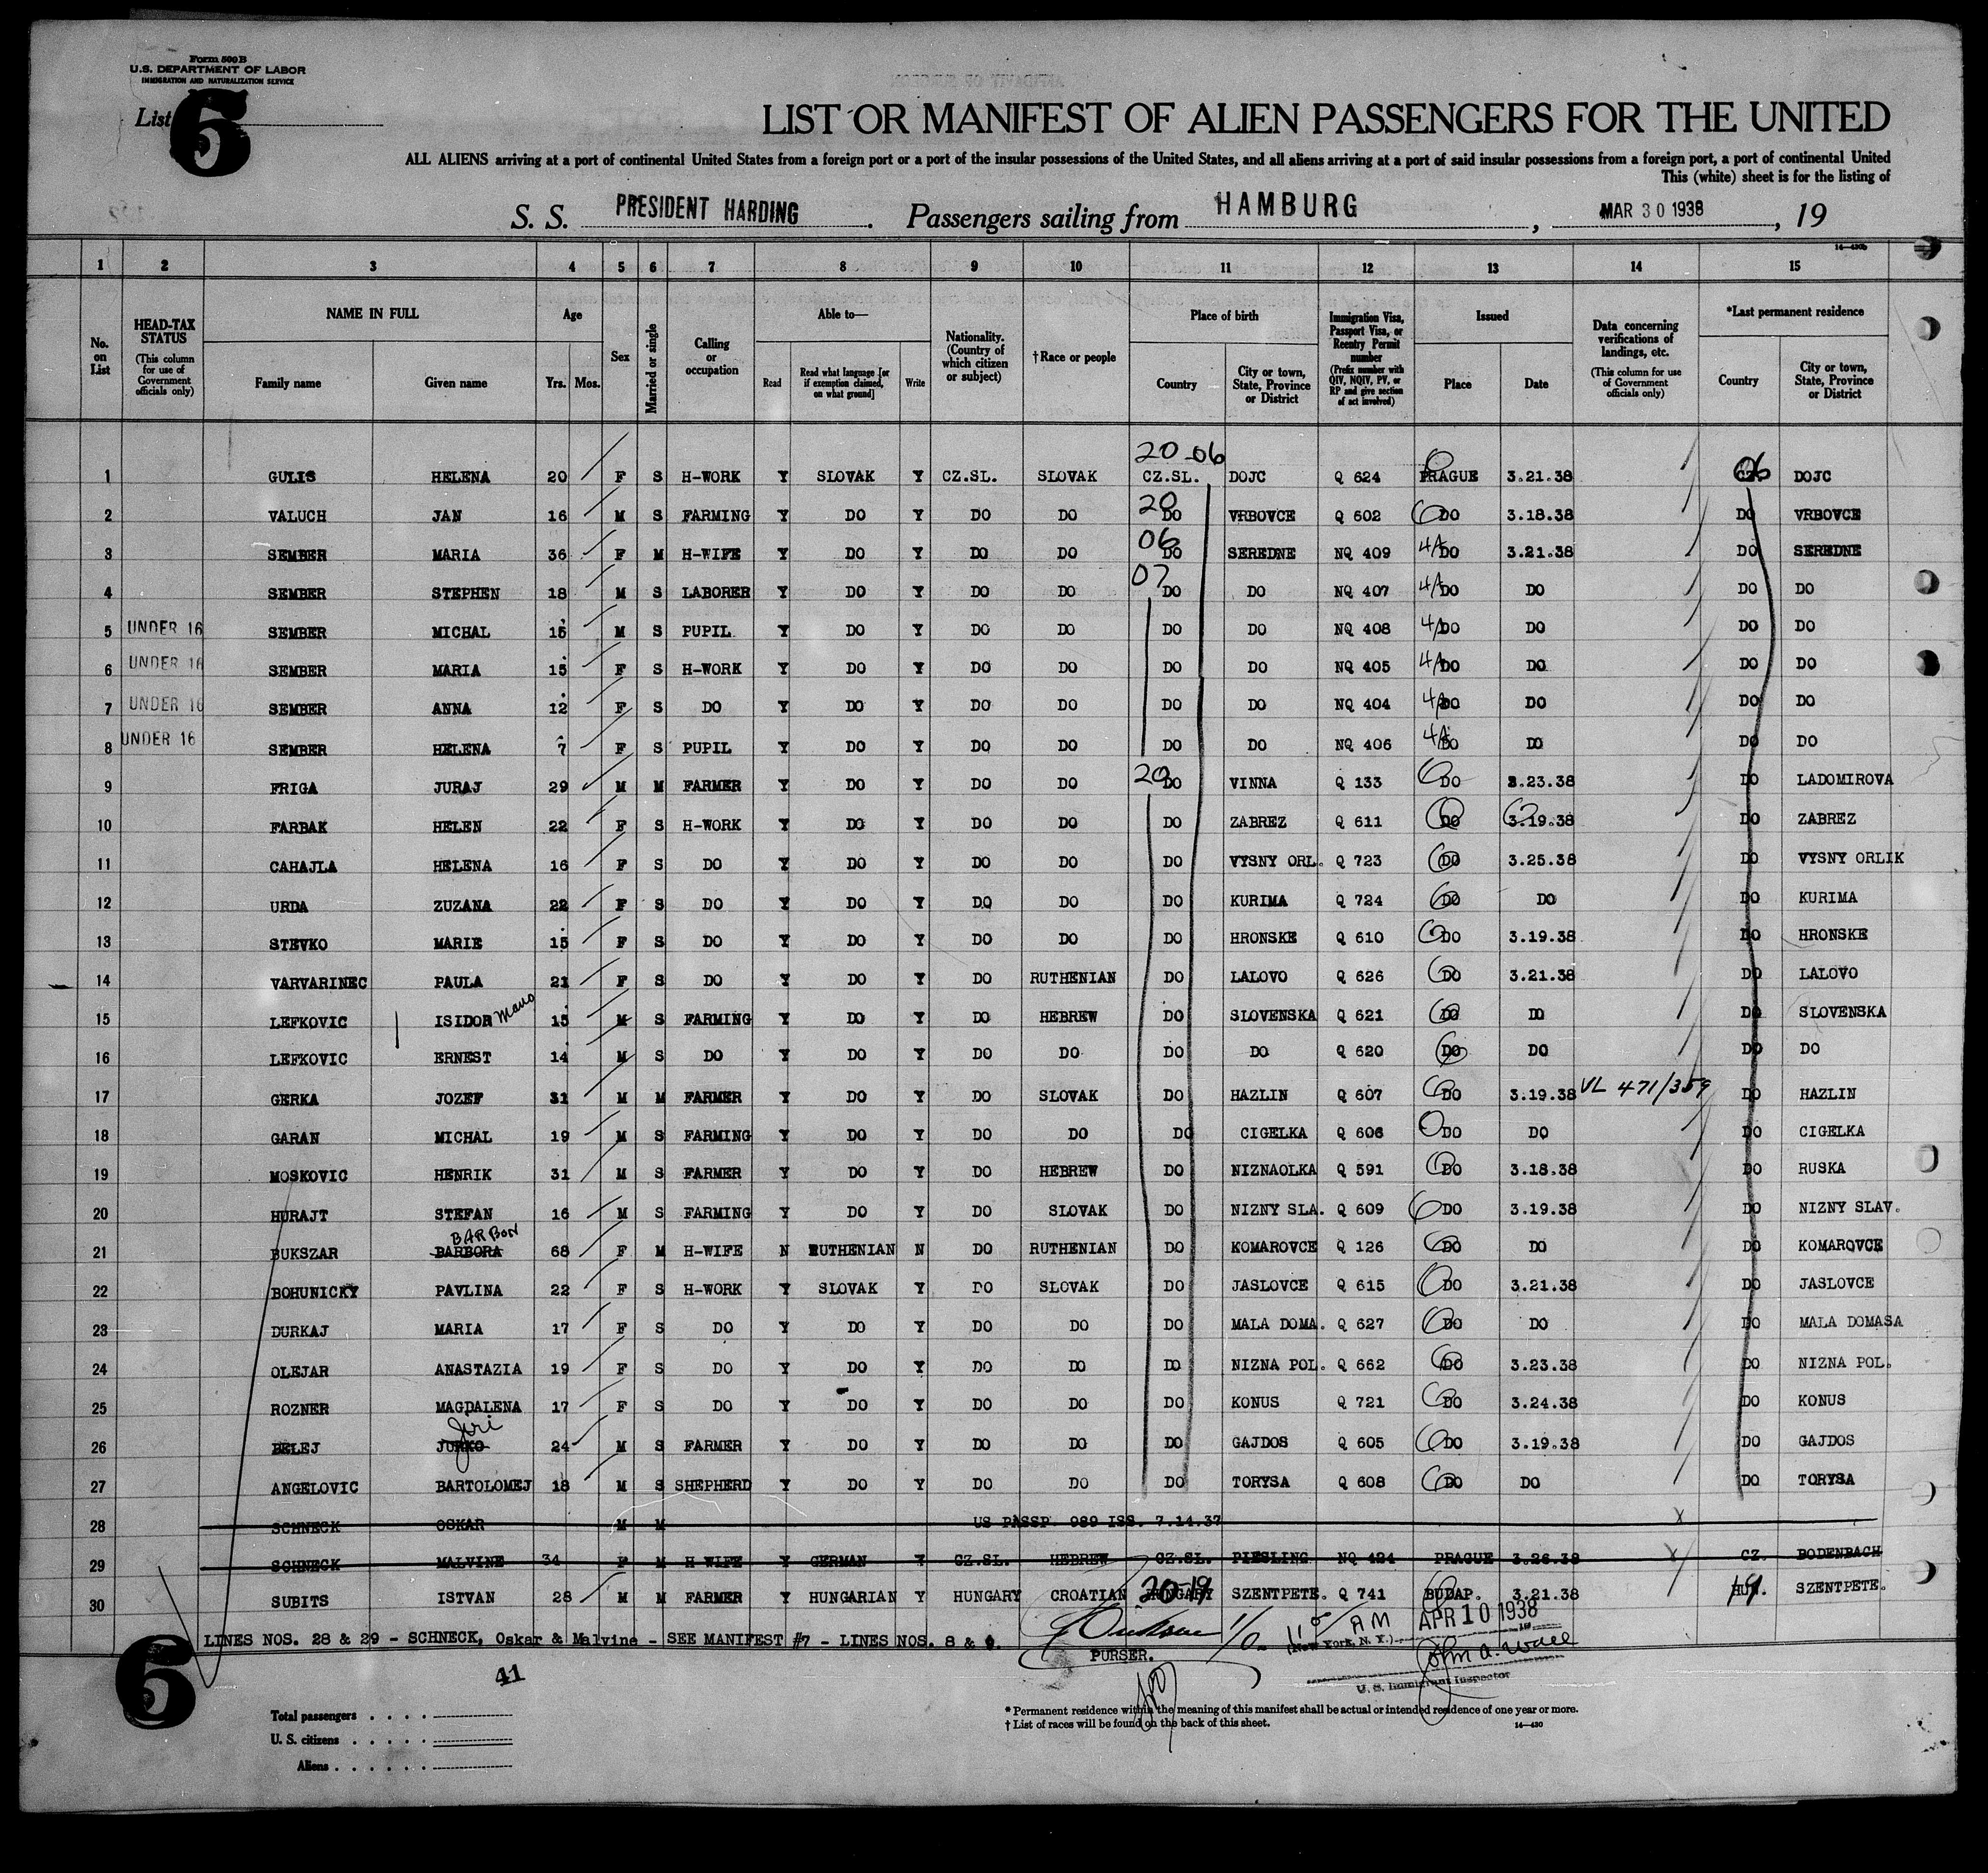 Form 500 B
U.S. DEPARTMENT OF LABOR
IMMIGRATION AND NATURALIZATION SERVICE
List 6
LIST OR MANIFEST OF ALIEN PASSENGERS FOR THE UNITED
ALL ALIENS arriving at a port of continental United States from a foreign port or a port of the insular possessions of the United States, and all aliens arriving at a port of said insular possessions from a foreign port, a port of continental United
This (white) sheet is for the listing of
S. S. PRESIDENT HARDING. Passengers sailing from HAMBURG, MAR 30 1938, 19
14—430b
1 2 3 4 5 6 7 8 9 10 11 12 13 14 15
No. on List
HEAD-TAX STATUS (This column for use of Government officials only)
NAME IN FULL Family name Given name
Age Yrs. Mos.
Sex
Married or single
Calling or occupation
Able to— Read Read what language [or if exemption claimed, on what ground] Write
Nationality. (Country of which citizen or subject)
†Race or people
Place of birth Country City or town, State, Province or District
Immigration Visa, Passport Visa, or Reentry Permit number (Prefix number with QIV, NQIV, PV, or RP and give section of act involved)
Issued Place Date
Data concerning verifications of landings, etc. (This column for use of Government officials only)
*Last permanent residence Country City or town, State, Province or District
20 06
1 GULIS HELENA 20 F S H-WORK Y SLOVAK Y CZ.SL. SLOVAK CZ.SL. DOJC Q 624 PRAGUE 3.21.38 CZ. 06 DOJC
2 VALUCH JAN 16 M S FARMING Y DO Y DO DO 20 DO VRBOVCE Q 602 DO 3.18.38 DO VRBOVCE
3 SEMBER MARIA 36 F M H-WIFE Y DO Y DO DO 06 DO SEREDNE NQ 409 4A DO 3.21.38 DO SEREDNE
4 SEMBER STEPHEN 18 M S LABORER Y DO Y DO DO 07 DO DO NQ 407 4A DO DO DO DO
5 UNDER 16 SEMBER MICHAL 15 M S PUPIL Y DO Y DO DO DO DO NQ 408 4A DO DO DO DO
6 UNDER 16 SEMBER MARIA 15 F S H-WORK Y DO Y DO DO DO DO NQ 405 4A DO DO DO DO
7 UNDER 16 SEMBER ANNA 12 F S DO Y DO Y DO DO DO DO NQ 404 4A DO DO DO DO
8 UNDER 16 SEMBER HELENA 7 F S PUPIL Y DO Y DO DO DO DO NQ 406 4A DO DO DO DO
9 FRIGA JURAJ 29 M M FARMER Y DO Y DO DO 20 DO VINNA Q 133 DO 2.23.38 DO LADOMIROVA
10 FARBAK HELEN 22 F S H-WORK Y DO Y DO DO DO ZABREZ Q 611 DO 3.19.38 DO ZABREZ
11 CAHAJLA HELENA 16 F S DO Y DO Y DO DO DO VYSNY ORL. Q 723 DO 3.25.38 DO VYSNY ORLIK
12 URDA ZUZANA 22 F S DO Y DO Y DO DO DO KURIMA Q 724 DO DO DO KURIMA
13 STEVKO MARIE 15 F S DO Y DO Y DO DO DO HRONSKE Q 610 DO 3.19.38 DO HRONSKE
14 VARVARINEC PAULA 21 F S DO Y DO Y DO RUTHENIAN DO LALOVO Q 626 DO 3.21.38 DO LALOVO
15 LEFKOVIC ISIDOR 15 M S FARMING Y DO Y DO HEBREW DO SLOVENSKA Q 621 DO DO DO SLOVENSKA
16 LEFKOVIC ERNEST 14 M S DO Y DO Y DO DO DO DO Q 620 DO DO DO DO
17 GERKA JOZEF 31 M M FARMER Y DO Y DO SLOVAK DO HAZLIN Q 607 DO 3.19.38 VL 471/359 DO HAZLIN
18 GARAN MICHAL 19 M S FARMING Y DO Y DO DO DO CIGELKA Q 606 DO DO DO CIGELKA
19 MOSKOVIC HENRIK 31 M S FARMER Y DO Y DO HEBREW DO NIZNAOLKA Q 591 DO 3.18.38 DO RUSKA
20 HURAJT STEFAN 16 M S FARMING Y DO Y DO SLOVAK DO NIZNY SLA. Q 609 DO 3.19.38 DO NIZNY SLAV.
BARBON
21 BUKSZAR BARBORA 68 F M H-WIFE N RUTHENIAN N DO RUTHENIAN DO KOMAROVCE Q 126 DO DO DO KOMAROVCE
22 BOHUNICKY PAVLINA 22 F S H-WORK Y SLOVAK Y DO SLOVAK DO JASLOVCE Q 615 DO 3.21.38 DO JASLOVCE
23 DURKAJ MARIA 17 F S DO Y DO Y DO DO DO MALA DOMA. Q 627 DO DO DO MALA DOMASA
24 OLEJAR ANASTAZIA 19 F S DO Y DO Y DO DO DO NIZNA POL. Q 662 DO 3.23.38 DO NIZNA POL.
25 ROZNER MAGDALENA 17 F S DO Y DO Y DO DO DO KONUS Q 721 DO 3.24.38 DO KONUS
Jiri
26 BELEJ JURKO 24 M S FARMER Y DO Y DO DO DO GAJDOS Q 605 DO 3.19.38 DO GAJDOS
27 ANGELOVIC BARTOLOMEJ 18 M S SHEPHERD Y DO Y DO DO DO TORYSA Q 608 DO DO DO TORYSA
28 SCHNECK OSKAR M M US PASSP. 989 ISS. 7.14.37 X
29 SCHNECK MALVINE 34 F M H-WIFE Y GERMAN Y CZ.SL. HEBREW CZ.SL. PIESLING NQ 424 PRAGUE 3.26.38 X CZ. BODENBACH
30 SUBITS ISTVAN 28 M M FARMER Y HUNGARIAN Y HUNGARY CROATIAN HUNGARY 20-19 SZENTPETE. Q 741 BUDAP. 3.21.38 HUN. 19 SZENTPETE.
LINES NOS. 28 & 29 - SCHNECK, Oskar & Malvine - SEE MANIFEST #7 - LINES NOS. 8 & 9.
PURSER.
AM APR 10 1938
(New York, N. Y.)
John A. Wall
U. S. Immigrant Inspector
6
41
Total passengers
U. S. citizens
Aliens
* Permanent residence within the meaning of this manifest shall be actual or intended residence of one year or more.
† List of races will be found on the back of this sheet.
14—430